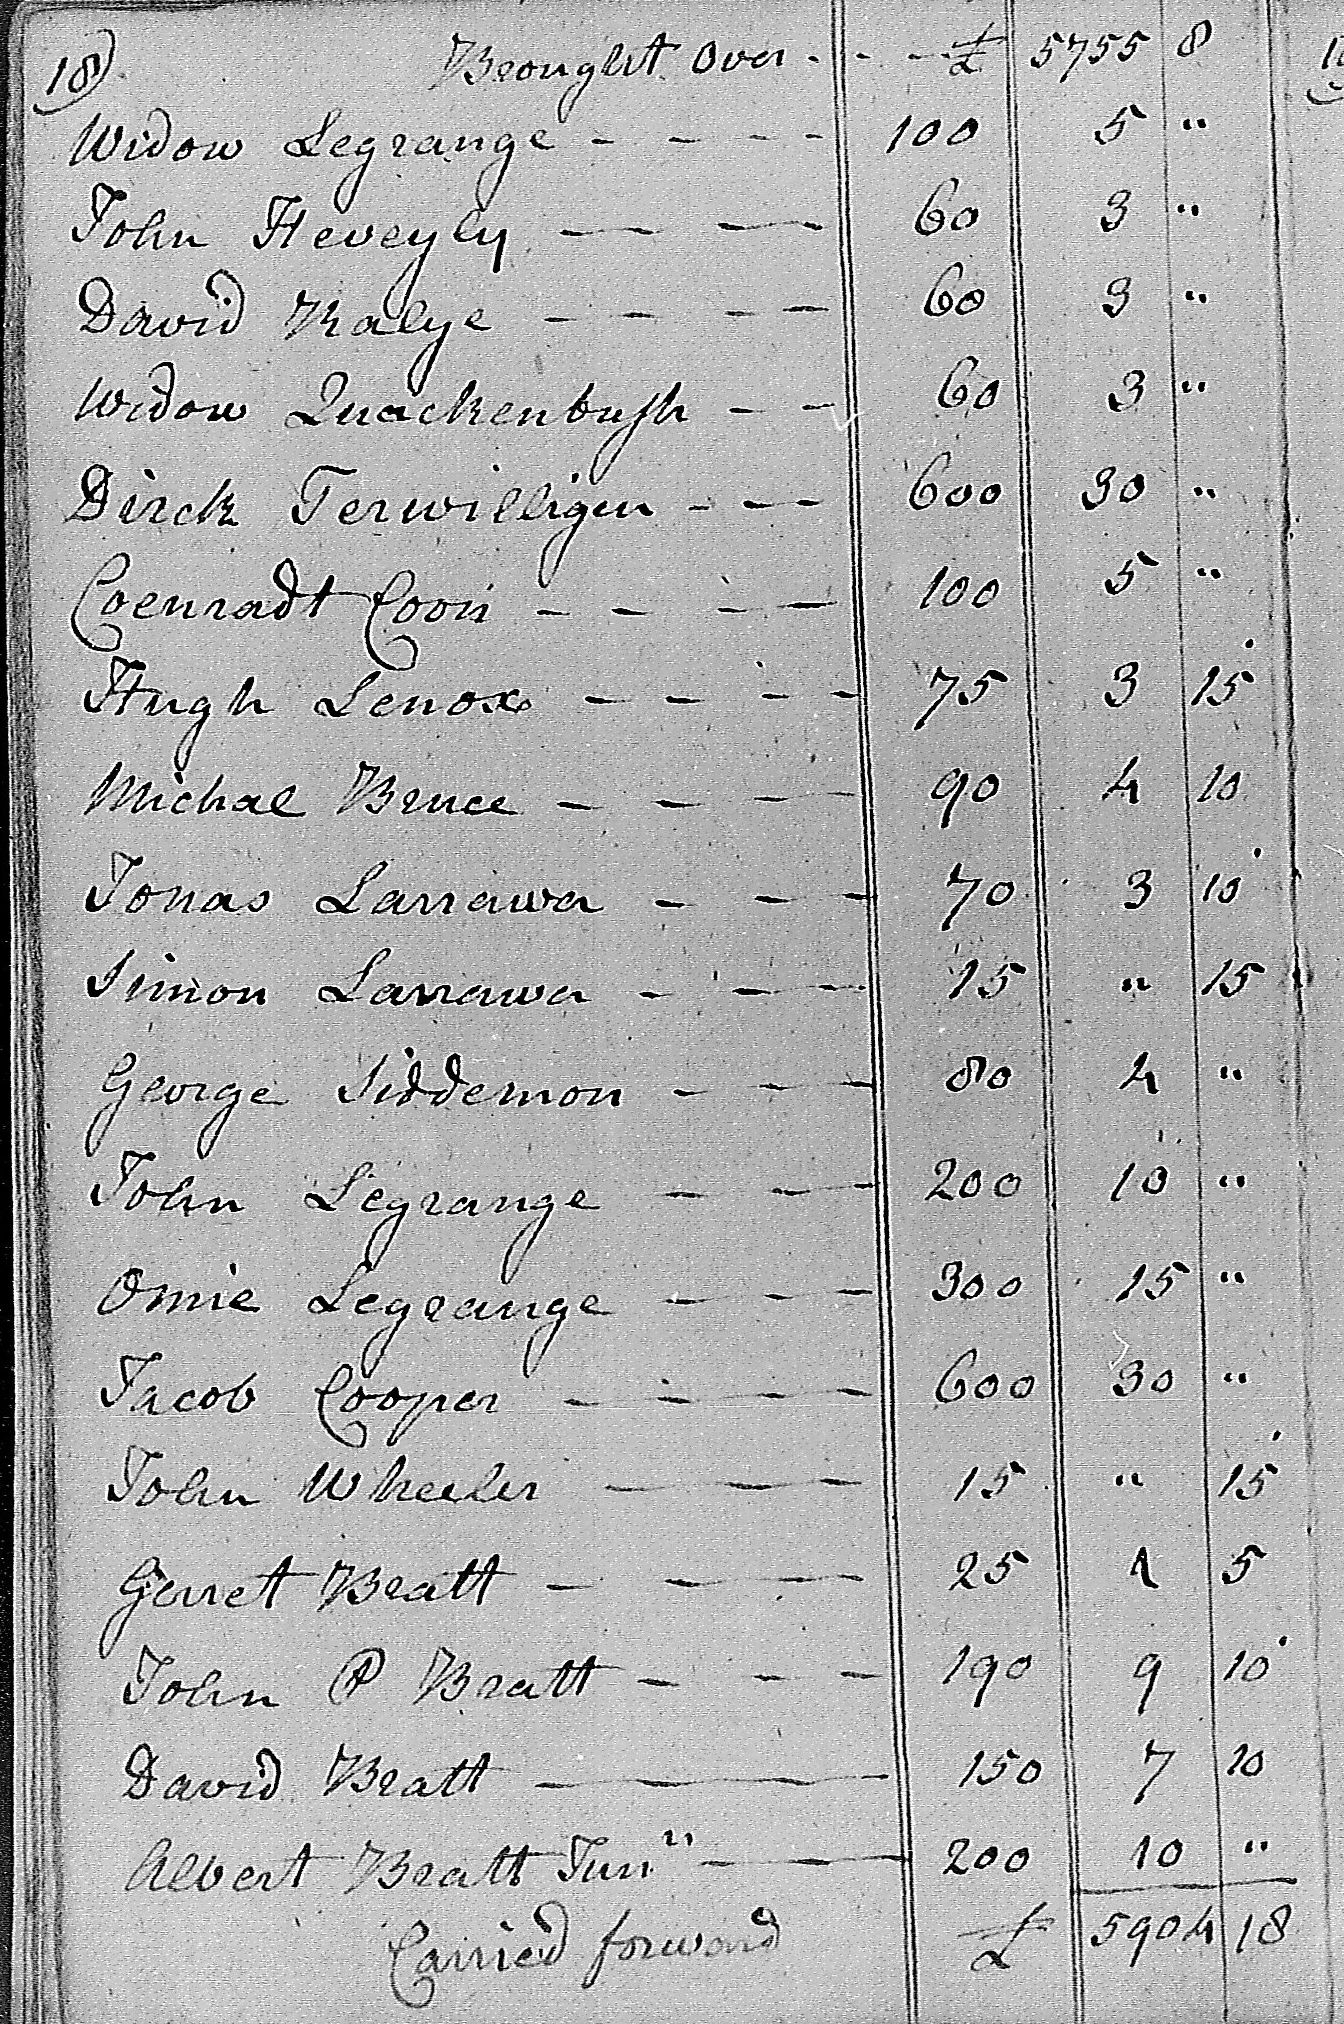 18) Brought Over - - - £ 5755 8
Widow Legrange - - - - 100 5 "
John Heveyly - - - - 60 3 "
David Kalye - - - - 60 3 "
Widow Quackenbush - - 60 3 "
Dirck Terwilligen - - - 600 30 "
Coenradt Coon - - - - 100 5 "
Hugh Lenox - - - - 75 3 15
Michal Bruce - - - - 90 4 10
Jonas Larrawa - - - 70 3 10
Simon Larrawa - - - 15 " 15
George Siddemon - - - 80 4 "
John Legrange - - - 200 10 "
Omie Legrange - - - 300 15 "
Jacob Cooper - - - - 600 30 "
John Wheeler - - - 15 " 15
Gerret Bratt - - - 25 1 5
John P Bratt - - - 190 9 10
David Bratt - - - - 150 7 10
Albert Bratt Jun" - - - 200 10 "
Carried forward £ 5904 18